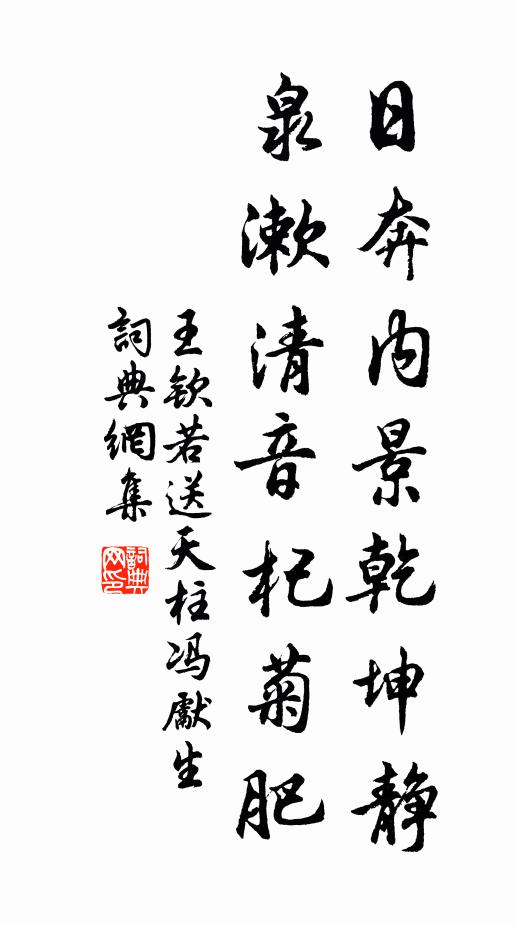 日奔内景乾坤静
泉漱清音杞菊肥
王钦若送天柱冯獻生
詞典網集
詞典网印